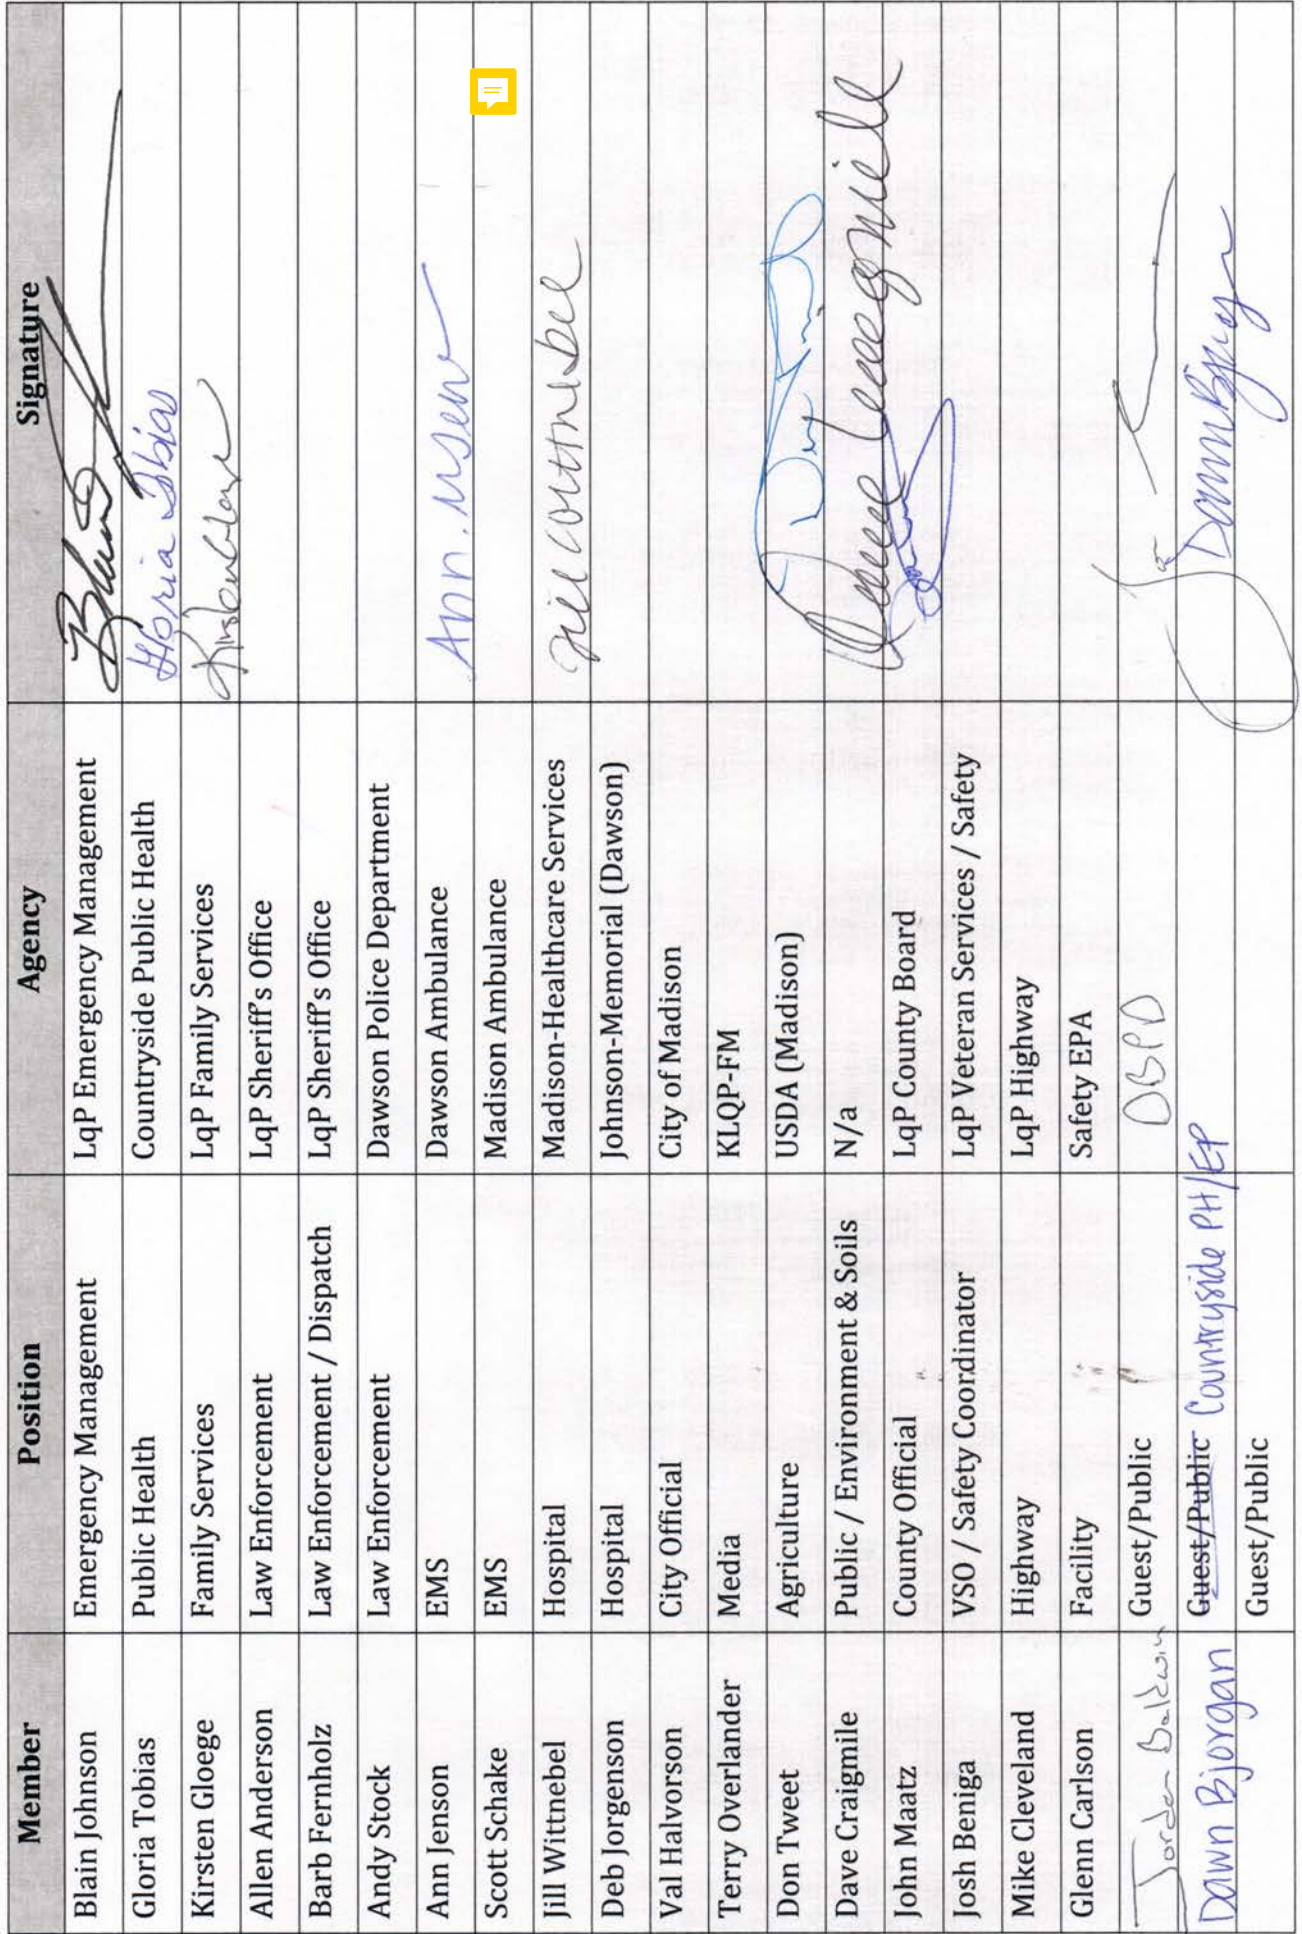 Member Position Agency Signature
Blain Johnson Emergency Management LqP Emergency Management
Gloria Tobias Public Health Countryside Public Health Gloria Tobias
Kirsten Gloege Family Services LqP Family Services
Allen Anderson Law Enforcement LqP Sheriff's Office
Barb Fernholz Law Enforcement / Dispatch LqP Sheriff's Office
Andy Stock Law Enforcement Dawson Police Department
Ann Jenson EMS Dawson Ambulance Ann
Scott Schake EMS Madison Ambulance
Jill Wittnebel Hospital Madison-Healthcare Services Jill Wittnebel
Deb Jorgenson Hospital Johnson-Memorial (Dawson)
Val Halvorson City Official City of Madison
Terry Overlander Media KLQP-FM
Don Tweet Agriculture USDA (Madison)
Dave Craigmile Public / Environment & Soils N/a
John Maatz County Official LqP County Board
Josh Beniga VSO / Safety Coordinator LqP Veteran Services / Safety
Mike Cleveland Highway LqP Highway
Glenn Carlson Facility Safety EPA
Jordan Baldwin Guest/Public DBPD
Dawn Bjorgan Guest/Public Countryside PH/EP
Guest/Public